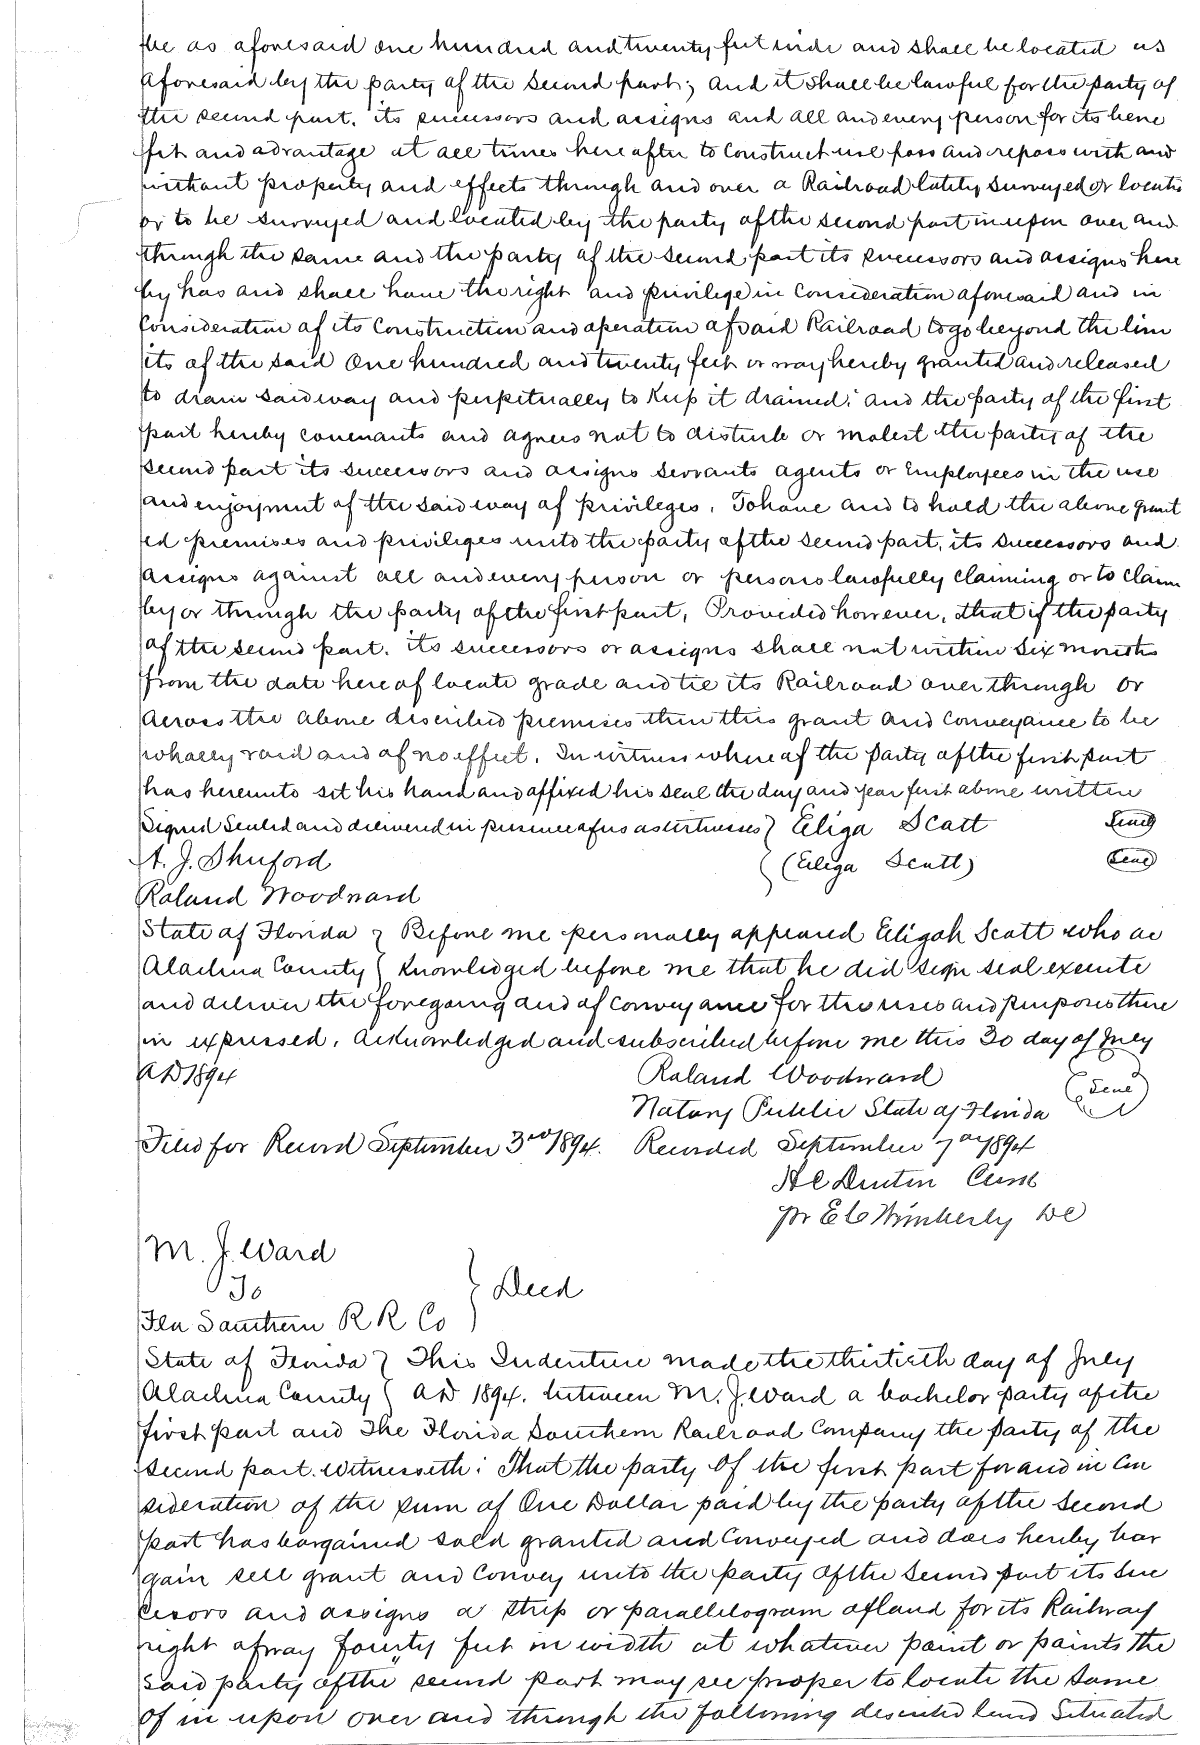 be as aforesaid one hundred and twenty feet wide and shall be located as
aforesaid by the party of the second part; and it shall be lawful for the party of
the second part, its successors and assigns and all and every person for its bene
fit and advantage at all times hereafter to construct use pass and repass with and
without property and effects through and over a Railroad lately surveyed or located
or to be surveyed and located by the party of the second part in upon over and
through the same and the party of the second part its successors and assigns here
by has and shall have the right and privilege in consideration aforesaid and in
Consideration of its Construction and operation of said Railroad to go beyond the lim
its of the said One hundred and twenty feet or way hereby granted and released
to drain said way and perpetually to keep it drained; and the party of the first
part hereby covenants and agrees not to disturb or molest the party of the
second part its successors and assigns servants agents or Employees in the use
and enjoyment of the said way of privileges. To have and to hold the above grant
ed premises and privileges unto the party of the second part, its successors and
assigns against all and every person or persons lawfully claiming or to claim
by or through the party of the first part, Provided however, that if the party
of the second part. its successors or assigns shall not within Six months
from the date hereof locate grade and tie its Railroad over through or
across the above described premises then this grant and conveyance to be
wholly void and of no effect. In witness whereof the party of the first part
has hereunto set his hand and affixed his seal the day and year first above written
Signed Sealed and delivered in presence of us as witnesses } Eliga Scott Seal
A. J. Shuford } (Eliga Scott) Seal
Roland Woodward
State of Florida } Before me personally appeared Eligah Scott who ac
Alachua County } knowledged before me that he did sign seal execute
and deliver the foregoing deed of conveyance for the uses and purposes there
in expressed. Acknowledged and subscribed before me this 30 day of July
AD 1894 Roland Woodward
Notary Public State of Florida Seal
Filed for Record September 3rd 1894. Recorded September 7th 1894
H C Denton Clerk
pr E C Wimberly DC
M. J. Ward
To } Deed
Fla Southern R R Co
State of Florida } This Indenture made the thirtieth day of July
Alachua County } AD 1894. between M. J. Ward a bachelor party of the
first part and The Florida Southern Railroad Company the party of the
second part. Witnesseth: That the party of the first part for and in Con
sideration of the sum of One Dollar paid by the party of the second
part has bargained sold granted and conveyed and does hereby bar
gain sell grant and convey unto the party of the second part its suc
cessors and assigns a strip or parallelogram of land for its Railway
right of way fourty feet in width at whatever point or points the
said party of the second part may see proper to locate the same
of in upon over and through the following described land Situated